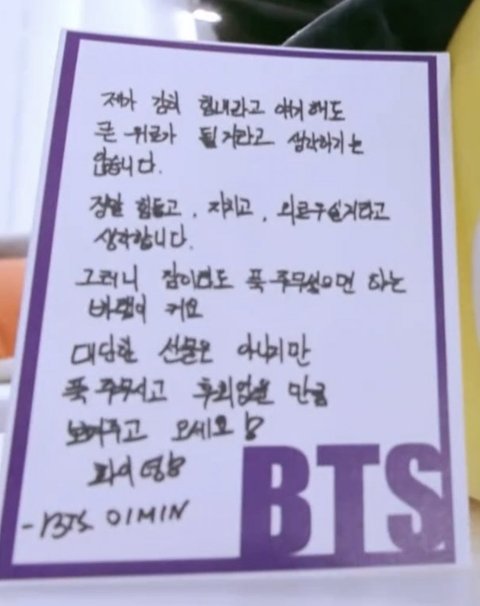 제가 감히 힘내라고 얘기해도
큰 위로가 될거라고 생각하기는
않습니다.
정말 힘들고, 지치고, 외로우실거라고
생각합니다.
그러니 잠이라도 푹 주무셨으면 하는
바램이 커요
대단한 선물은 아니지만
푹 주무시고 후회없을 만큼
보여주고 오세요
화이팅
-BTS JIMIN
BTS